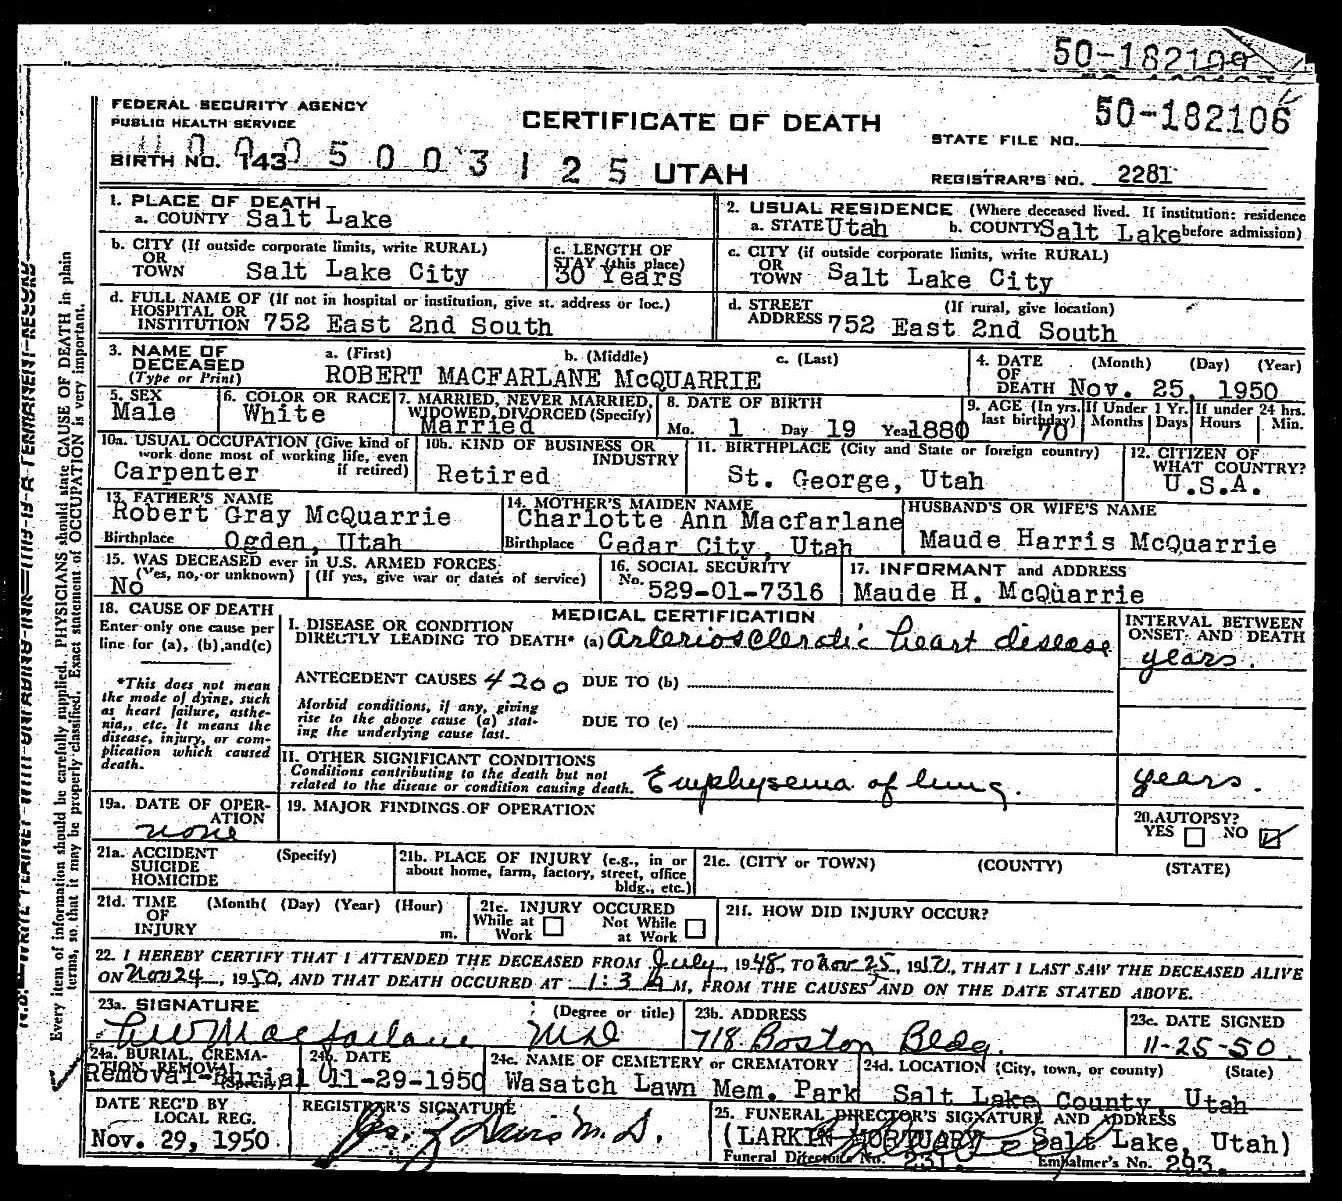 50-182109
50-182106
FEDERAL SECURITY AGENCY
PUBLIC HEALTH SERVICE
CERTIFICATE OF DEATH
STATE FILE NO.
BIRTH NO. 143
0 5 0 0 3 1 2 5 UTAH
REGISTRAR'S NO. 2281
1. PLACE OF DEATH
a. COUNTY Salt Lake
2. USUAL RESIDENCE (Where deceased lived. If institution: residence before admission)
a. STATE Utah b. COUNTY Salt Lake
b. CITY (If outside corporate limits, write RURAL)
OR TOWN Salt Lake City
c. LENGTH OF STAY (this place)
30 Years
c. CITY (if outside corporate limits, write RURAL)
OR TOWN Salt Lake City
d. FULL NAME OF (If not in hospital or institution, give st. address or loc.)
HOSPITAL OR
INSTITUTION 752 East 2nd South
d. STREET ADDRESS (If rural, give location)
752 East 2nd South
3. NAME OF DECEASED (Type or Print)
a. (First) b. (Middle) c. (Last)
ROBERT MACFARLANE McQUARRIE
4. DATE OF DEATH (Month) (Day) (Year)
Nov. 25, 1950
5. SEX
Male
6. COLOR OR RACE
White
7. MARRIED, NEVER MARRIED, WIDOWED, DIVORCED (Specify)
Married
8. DATE OF BIRTH
Mo. 1 Day 19 Year 1880
9. AGE (In yrs. last birthday)
70
If Under 1 Yr. Months Days
If under 24 hrs. Hours Min.
10a. USUAL OCCUPATION (Give kind of work done most of working life, even if retired)
Carpenter
10b. KIND OF BUSINESS OR INDUSTRY
Retired
11. BIRTHPLACE (City and State or foreign country)
St. George, Utah
12. CITIZEN OF WHAT COUNTRY?
U.S.A.
13. FATHER'S NAME
Robert Gray McQuarrie
Birthplace Ogden, Utah
14. MOTHER'S MAIDEN NAME
Charlotte Ann Macfarlane
Birthplace Cedar City, Utah
HUSBAND'S OR WIFE'S NAME
Maude Harris McQuarrie
15. WAS DECEASED ever in U.S. ARMED FORCES
(Yes, no, or unknown) (If yes, give war or dates of service)
No
16. SOCIAL SECURITY
No. 529-01-7316
17. INFORMANT and ADDRESS
Maude H. McQuarrie
18. CAUSE OF DEATH
Enter only one cause per line for (a), (b), and (c)
*This does not mean the mode of dying, such as heart failure, asthenia, etc. It means the disease, injury, or complication which caused death.
MEDICAL CERTIFICATION
I. DISEASE OR CONDITION
DIRECTLY LEADING TO DEATH* (a) Arteriosclerotic heart disease
INTERVAL BETWEEN ONSET AND DEATH
years.
ANTECEDENT CAUSES 4200 DUE TO (b)
Morbid conditions, if any, giving rise to the above cause (a) stating the underlying cause last.
DUE TO (c)
II. OTHER SIGNIFICANT CONDITIONS
Conditions contributing to the death but not related to the disease or condition causing death.
Emphysema of lung.
years.
19a. DATE OF OPERATION
none
19. MAJOR FINDINGS OF OPERATION
20. AUTOPSY?
YES NO
21a. ACCIDENT SUICIDE HOMICIDE (Specify)
21b. PLACE OF INJURY (e.g., in or about home, farm, factory, street, office bldg., etc.)
21c. (CITY or TOWN) (COUNTY) (STATE)
21d. TIME OF INJURY (Month( (Day) (Year) (Hour) m.
21e. INJURY OCCURED
While at Work Not While at Work
21f. HOW DID INJURY OCCUR?
22. I HEREBY CERTIFY THAT I ATTENDED THE DECEASED FROM July, 1948, TO Nov 25, 1950, THAT I LAST SAW THE DECEASED ALIVE
ON Nov 24, 1950, AND THAT DEATH OCCURED AT 1:3 A M, FROM THE CAUSES AND ON THE DATE STATED ABOVE.
23a. SIGNATURE (Degree or title)
MacFarlane MD
23b. ADDRESS
718 Boston Bldg.
23c. DATE SIGNED
11-25-50.
24a. BURIAL, CREMATION, REMOVAL (Specify)
Removal-Burial
24b. DATE
11-29-1950
24c. NAME OF CEMETERY or CREMATORY
Wasatch Lawn Mem. Park
24d. LOCATION (City, town, or county) (State)
Salt Lake County, Utah
DATE REC'D BY LOCAL REG.
Nov. 29, 1950
REGISTRAR'S SIGNATURE
M.D.
25. FUNERAL DIRECTOR'S SIGNATURE AND ADDRESS
(LARKIN MORTUARY Salt Lake, Utah)
Funeral Director's No. 231. Embalmer's No. 293.
Every item of information should be carefully supplied. PHYSICIANS should state CAUSE OF DEATH in plain
terms, so that it may be properly classified. Exact statement of OCCUPATION is very important.